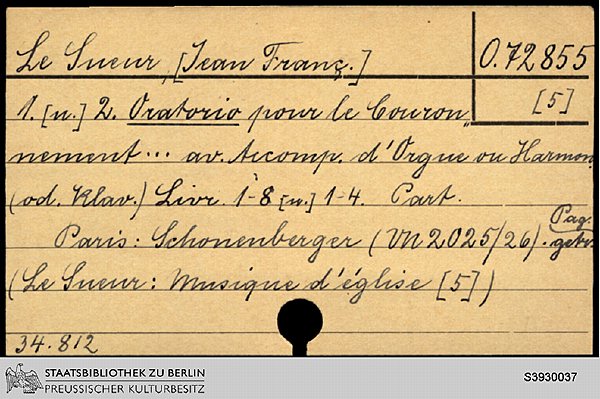 Le Sueur, [Jean Franç.]
O.72855
[5]
1. [u.] 2. Oratorio pour le Couron„
nement... av. Accomp. d'Orgue ou Harmon.
(od. Klav.) Livr. 1-8 [u.] 1-4. Part.
Paris: Schonenberger (VN 2025/26). Pag.
getr.
(Le Sueur: Musique d'église [5])
34.812
STAATSBIBLIOTHEK ZU BERLIN
PREUSSISCHER KULTURBESITZ
S3930037